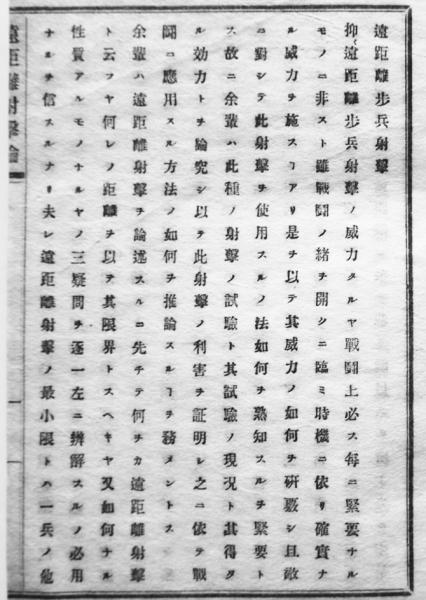 遠距離歩兵射撃
抑遠距離歩兵射撃ノ威力タルヤ戦闘上必ス毎ニ緊要ナル
モノニ非スト雖戦闘ノ緒ヲ開シニ臨ミ時機ニ依リ確實ナ
ル威力ヲ施スヿアリ是ヲ以テ其威力ノ如何ヲ研覈シ且敵
ニ對シテ此射撃ヲ使用スルノ法如何ヲ熟知スルヲ緊要ト
ス故ニ余輩ハ此種ノ射撃ノ試驗ト其試驗ノ現况ト其得タ
ル効力トヲ論究シ以テ此射撃ノ利害ヲ証明シ之ニ依テ戰
闘ニ應用スル方法ノ如何ヲ推論スルヿヲ務メントス
余輩ハ遠距離射撃ヲ論述スルニ先チテ何ヲカ遠距離射撃
ト云フヤ何レノ距離ヲ以テ其限界トスヘキヤ又如何ナル
性質アルモノナルヤノ三疑問ヲ逐一左ニ辨解スルノ必用
ナルヲ信スルナリ夫レ遠距離射撃ノ最小限トハ一兵ノ他
遠距離射撃論
一